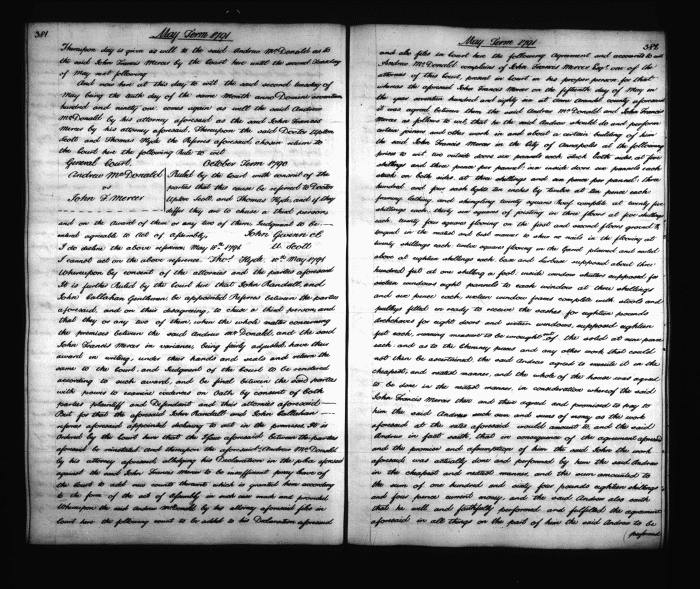 381
May Term 1791
Thereupon day is given as well to the said Andrew McDonald as to
the said John Francis Mercer by the Court here until the second Tuesday
of May next following
And now here at this day to wit the said second Tuesday of
May being the tenth day of the same Month anno Domini seventeen
hundred and ninety one comes again as well the said Andrew
McDonald by his attorney aforesaid as the said John Francis
Mercer by his attorney aforesaid, Thereupon the said Doctor Upton
Scott and Thomas Hyde the referees aforesaid chosen return to
the Court here the following Rule to wit
General Court. October Term 1790
Andrew McDonald
vs
John F. Mercer
Ruled by the Court with consent of the
parties that this cause be referred to Doctor
Upton Scott and Thomas Hyde, and if they
differ they are to chuse a third person
and on the award of them or any two of them Judgment to be
entered agreeable to Act of Assembly, John Gwinn Clk
I do decline the above reference May 11th 1791 U. Scott
I cannot act on the above reference. Thos. Hyde 10th May 1791
Whereupon by consent of the attornies and the parties aforesaid
It is further Ruled by the Court here that John Randall, and
John Callahan Gentlemen be appointed Referees between the parties
aforesaid, and on their disagreeing, to chuse a third person, and
that they or any two of them, when the whole matter concerning
the premises between the said Andrew McDonald, and the said
John Francis Mercer in variance, being fairly adjusted have their
award in writing, under their hands and seals and return the
same to the Court, and Judgment of the Court to be rendered
according to such award, and be final between the said parties
with power to examine evidences on Oath by consent of both
parties plaintiff and Defendant and their attornies aforesaid
But for that the aforesaid John Randall and John Callahan
referees aforesaid appointed declining to act in the premises It is
Ordered by the Court here that the Issue aforesaid between the parties
aforesaid be reinstated, and thereupon the aforesaid Andrew McDonald
by his attorney aforesaid alledging his Declaration in the plea aforesaid
against the said John Francis Mercer to be insufficient prays leave of
the Court to add new counts thereto which is granted him according
to the form of the act of Assembly in such case made and provided
Whereupon the said Andrew McDonald by his attorney aforesaid files in
Court here the following count to be added to his Declaration aforesaid
May Term 1791
382
and also files in Court here the following Agreement and account to wit
Andrew McDonald complains of John Francis Mercer Esqr. one of the
attornies of this Court, present in Court in his proper person for that
whereas the aforesaid John Francis Mercer on the fifteenth day of May in
the year seventeen hundred and eighty at Anne Arundel County aforesaid
it was agreed between them the said Andrew McDonald and John Francis
Mercer as follows to wit, that he the said Andrew should do and perform
certain joiners and other work in and about a certain building of him
the said John Francis Mercer in the City of Annapolis at the following
prices to wit two outside doors six pannels each stuck both sides at five
shillings and three pence per pannel, six inside doors six pannels each
stuck on both sides at three shillings and six pence per pannel, three
hundred and four sash lights ten inches by twelve at ten pence each
framing lathing and shingling twenty square Roof complete at twenty five
shillings each, thirty six squares of joisting in three floors at five shillings
each, twenty four squares flooring in the first and second floors grooved &
tongued in the neatest and best manner to show no nails in the flooring at
twenty shillings each twelve squares flooring in the Garret plained and nailed
above at eighteen shillings each base and surbase supposed about three
hundred feet at one shilling a foot, inside window shutters supposed for
sixteen windows eight pannels to each window at three shillings
and six pence each, sixteen window frames complete with stools and
pullies filled in ready to receive the sashes for eighteen pounds
architraves for eight doors and sixteen windows, supposed eighteen
feet each, running measure to be wrought out of the solid at nine pence
each and as to the Chimney pieces and any other work that could
not then be ascertained the said Andrew agreed to execute it in the
cheapest, and neatest manner, and the whole of the house was agreed
to be done in the neatest manner, in consideration whereof the said
John Francis Mercer then and there agreed and promised to pay to
him the said Andrew such sum and sums of money as the work
aforesaid at the rates aforesaid would amount to, and the said
Andrew in fact saith, that in consequence of the agreement aforesaid
and the promise and assumption of him the said John the work
aforesaid was actually done and performed by him the said Andrew
in the cheapest and neatest manner and the same amounted to
the sum of one hundred and sixty four pounds eighteen shillings
and four pence current money, and the said Andrew also saith
that he well and faithfully performed and fulfilled the agreement
aforesaid in all things on the part of him the said Andrew to be
performed